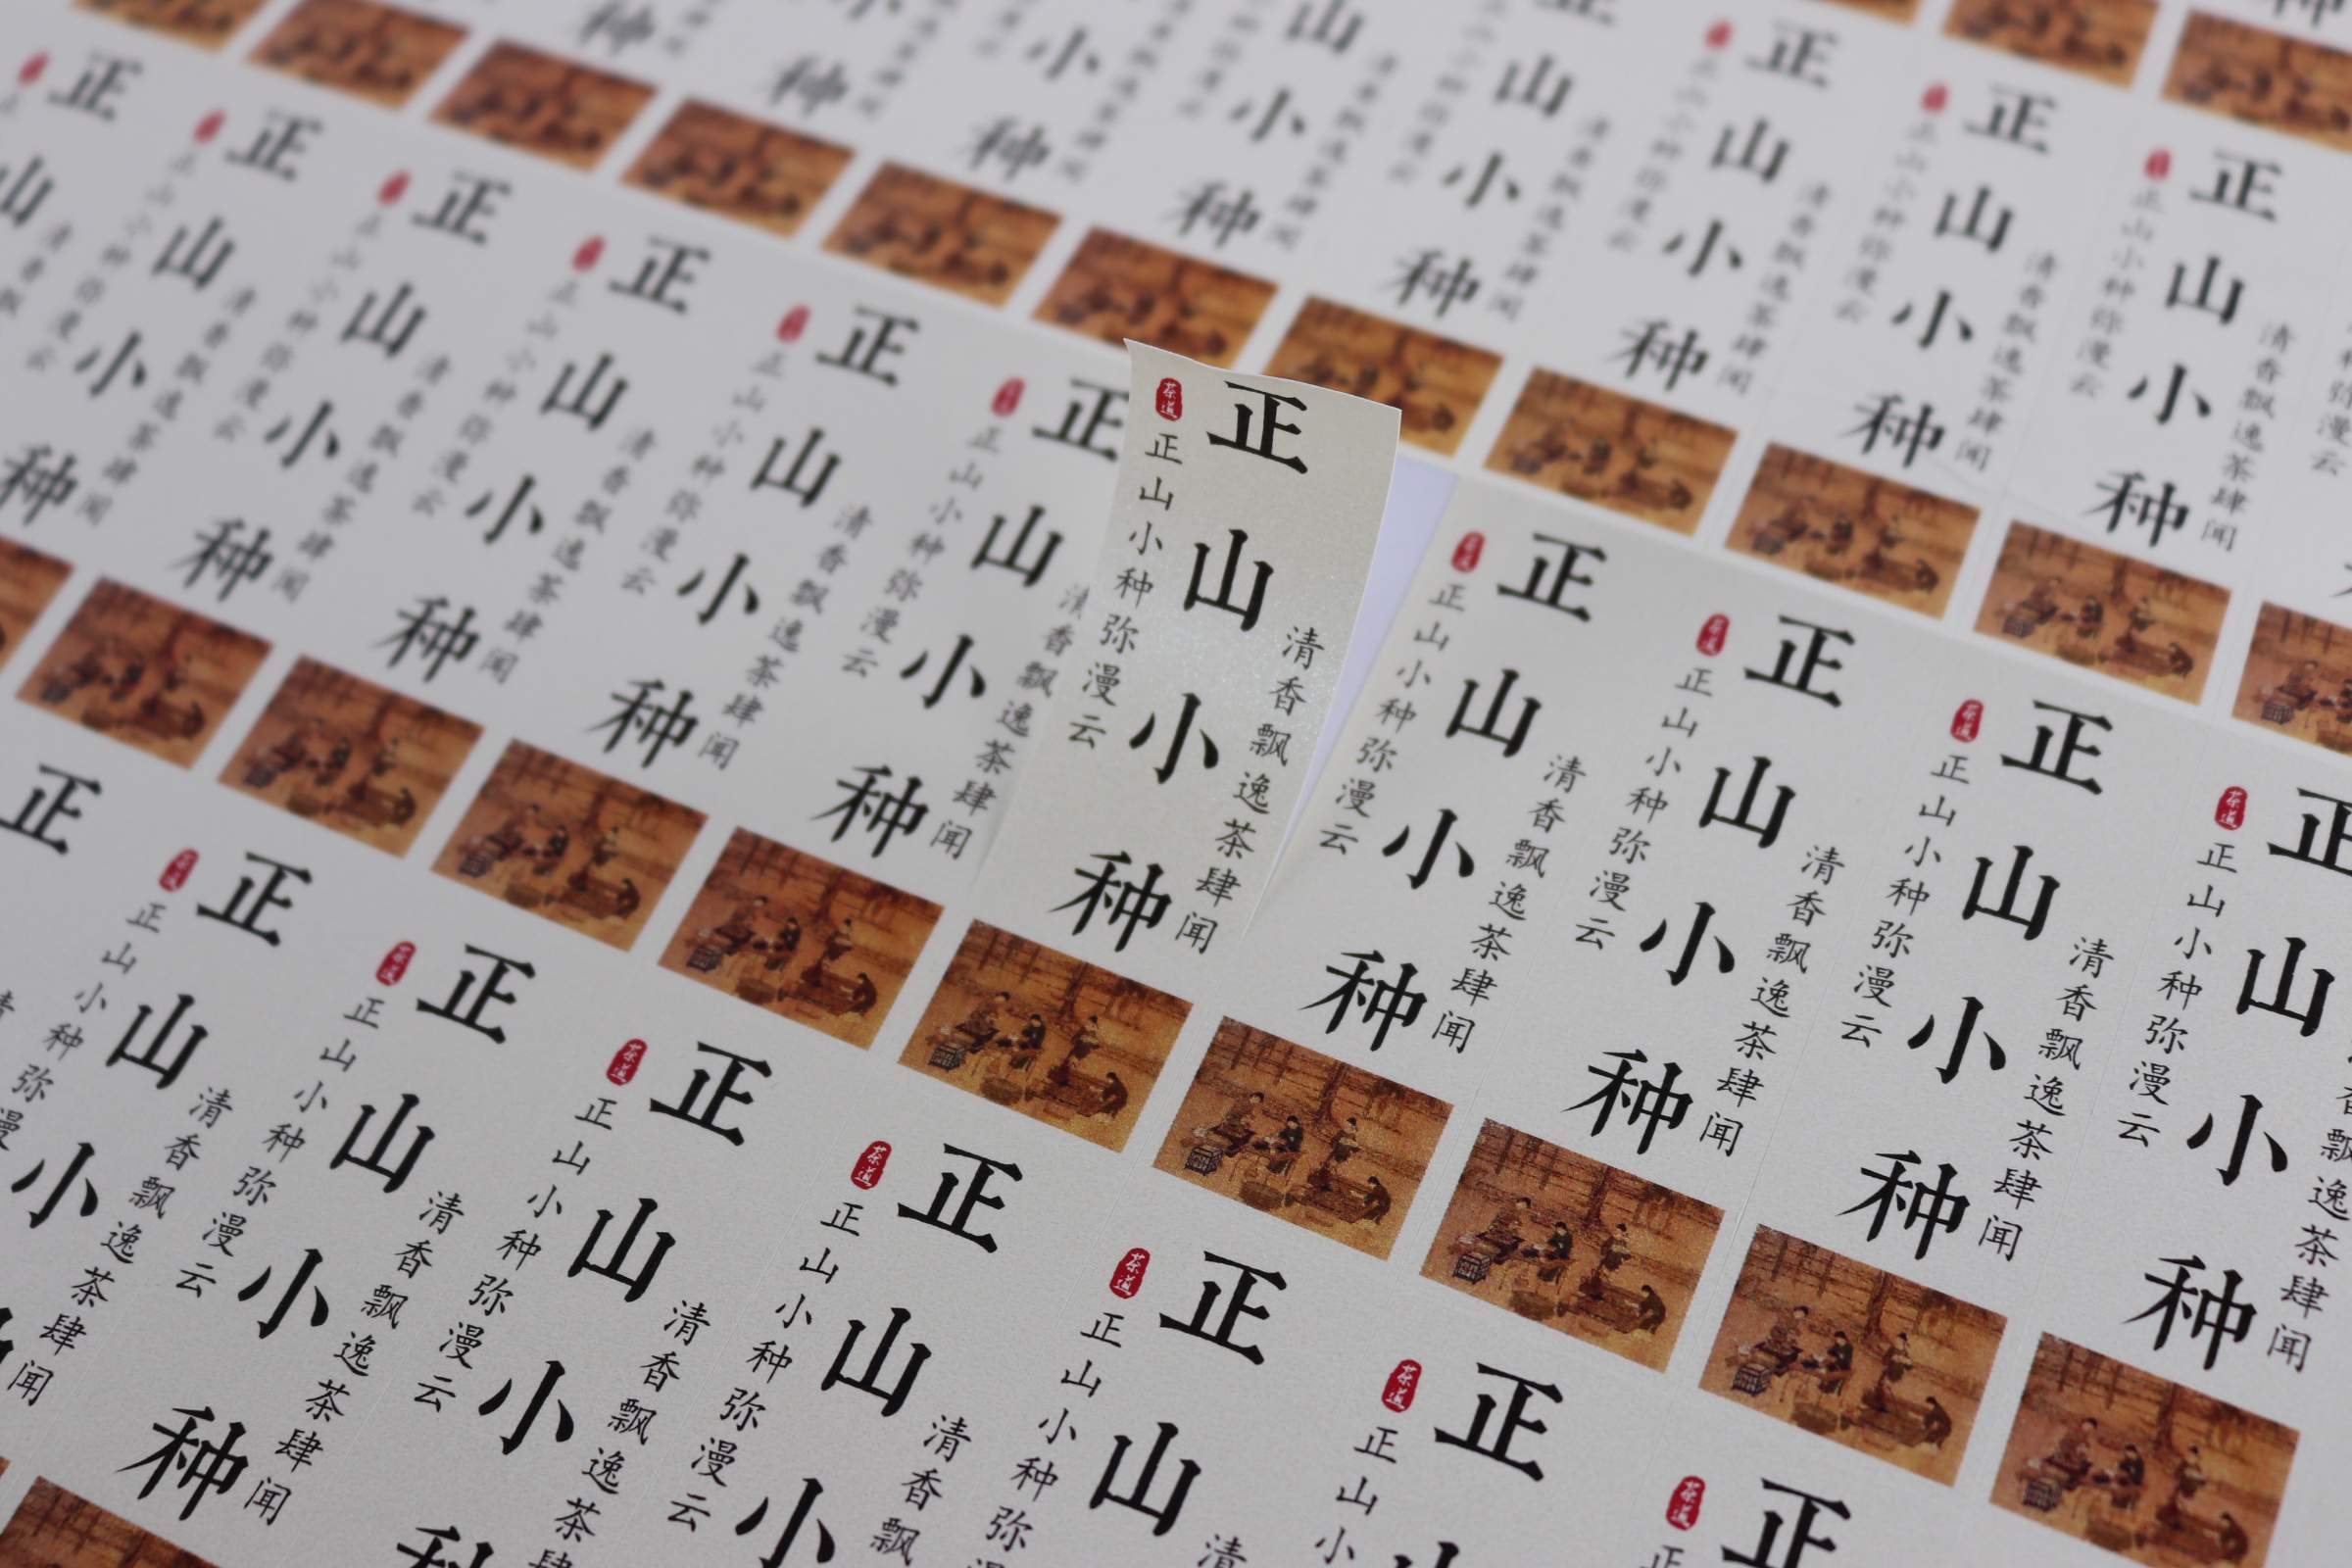 正山小种
清香飘逸茶肆闻
正山小种弥漫云
茶道